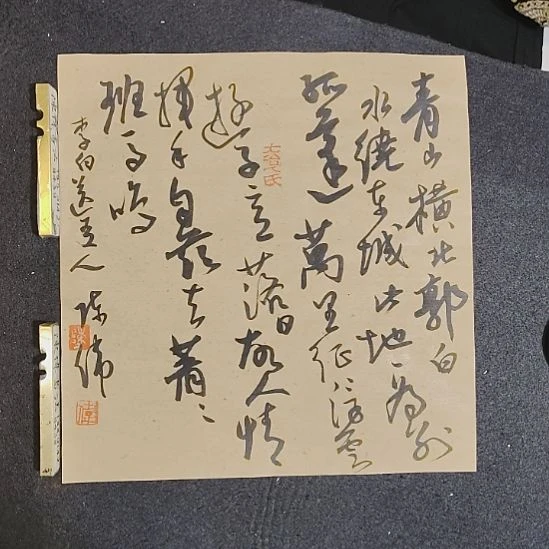 青山橫北郭白
水繞東城此地一為別
孤蓬萬里征浮雲
遊子意落日故人情
揮手自茲去蕭〻
班馬鳴
李白送友人 陳偉
陳
偉